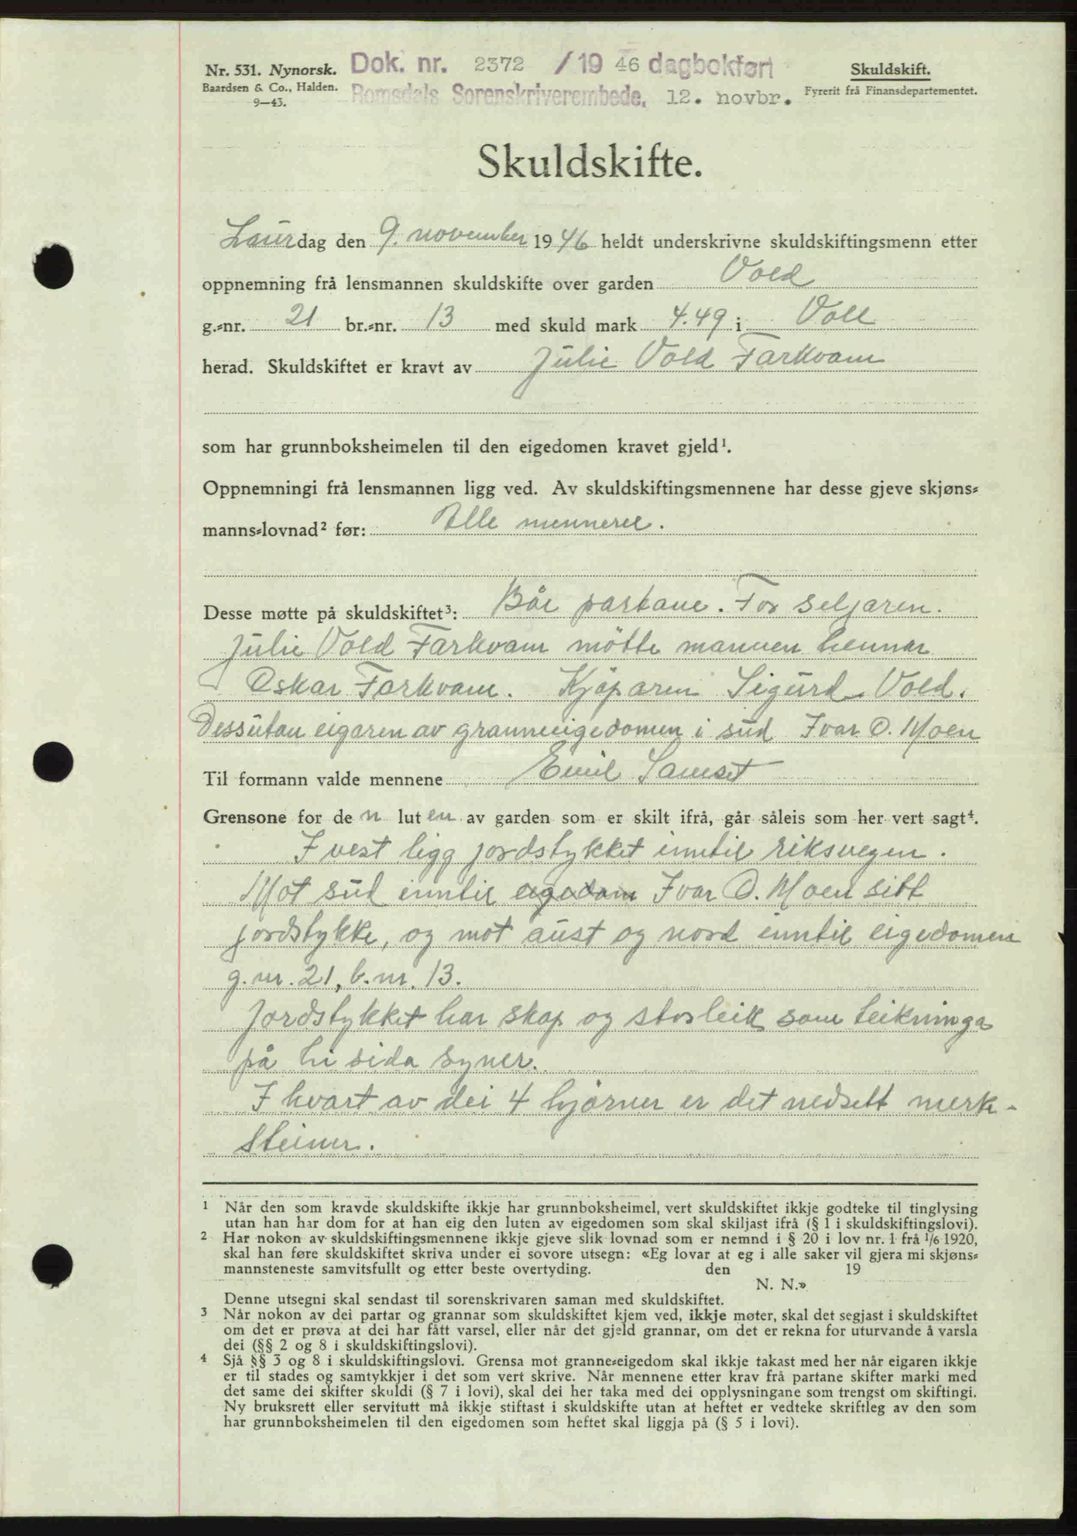 Nr. 531. Nynorsk.
Baardsen & Co., Halden.
9—43.
Dok. nr. 2372 / 19 46 dagbokført
Romsdals Sorenskriverembede, 12. novbr.
Skuldskift.
Fyrerit frå Finansdepartementet.
Skuldskifte.
Laurdag den 9. november 1946 heldt underskrivne skuldskiftingsmenn etter
oppnemning frå lensmannen skuldskifte over garden Vold
g.=nr. 21 br.=nr. 13 med skuld mark 4.49 i Voll
herad. Skuldskiftet er kravt av Julie Vold Farkvam
som har grunnboksheimelen til den eigedomen kravet gjeld¹.
Oppnemningi frå lensmannen ligg ved. Av skuldskiftingsmennene har desse gjeve skjøns=
manns=lovnad² før: Alle mennerer.
Desse møtte på skuldskiftet³: Båe partane. For seljaren.
Julie Vold Farkvam mötte mannen hennar
Oskar Farkvam. Kjöparen Sigurd Vold.
Dessutan eigaren av granneeigedomen i süd Ivar O. Moen
Til formann valde mennene Emil Samset
Grensone for de n lut en av garden som er skilt ifrå, går såleis som her vert sagt⁴.
I vest ligg jordstykket inntil riksvegen.
Mot süd inntil eigedom Ivar O. Moen sitt
jordstykke, og mot aust og nord inntil eigedomen
g.nr. 21, b.nr. 13.
Jordstykket har skap og storleik som teikninga
på hi sida syner.
I kvart av dei 4 hjörner er det nedsett merk-
steiner.
¹ Når den som kravde skuldskifte ikkje har grunnboksheimel, vert skuldskiftet ikkje godteke til tinglysing
utan han har dom for at han eig den luten av eigedomen som skal skiljast ifrå (§ 1 i skuldskiftingslovi).
² Har nokon av skuldskiftingsmennene ikkje gjeve slik lovnad som er nemnd i § 20 i lov nr. 1 frå ¹/₆ 1920,
skal han føre skuldskiftet skriva under ei sovore utsegn: «Eg lovar at eg i alle saker vil gjera mi skjøns=
mannsteneste samvitsfullt og etter beste overtyding. den 19
N. N.»
Denne utsegni skal sendast til sorenskrivaren saman med skuldskiftet.
³ Når nokon av dei partar og grannar som skuldskiftet kjem ved, ikkje møter, skal det segjast i skuldskiftet
om det er prøva at dei har fått varsel, eller når det gjeld grannar, om det er rekna for uturvande å varsla
dei (§§ 2 og 8 i skuldskiftingslovi).
⁴ Sjå §§ 3 og 8 i skuldskiftingslovi. Grensa mot granne=eigedom skal ikkje takast med her når eigaren ikkje
er til stades og samtykkjer i det som vert skrive. Når mennene etter krav frå partane skifter marki med
det same dei skifter skuldi (§ 7 i lovi), skal dei her taka med dei opplysningane som trengst om skiftingi.
Ny bruksrett eller servitutt må ikkje stiftast i skuldskifte utan at heftet er vedteke skriftleg av den som
har grunnboksheimelen til den eigedomen som heftet skal liggja på (§ 5 i lovi).